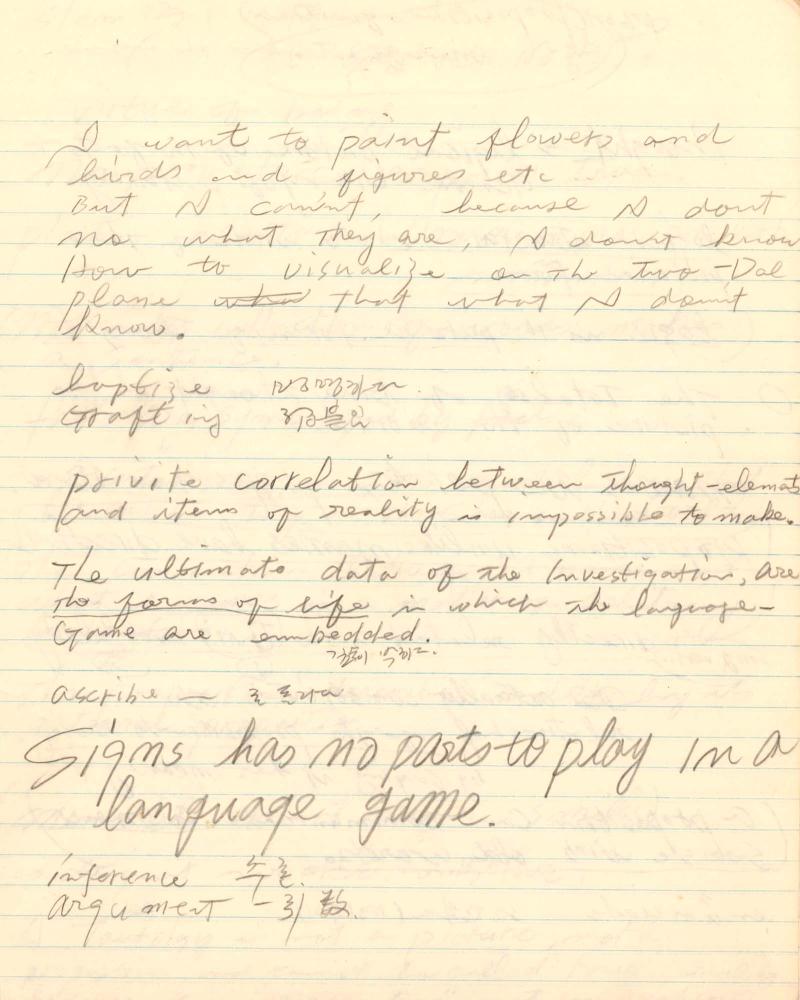 I want to paint flowers and
birds and figures etc
But I can'nt, because I dont
no what they are, I donnt know
How to visualize on the two-Dal
plane that what I donnt
know.
baptize 명명하다.
Grafting 접붙임
privite correlation between thought-elemats
and items of reality is impossible to make.
The ultimate data of the Investigation, are
the forms of life in which the language-
Game are embedded.
깊이 박히다.
ascribe —
Signs has no parts to play in a
language game.
inference 추론.
argument - 引数.